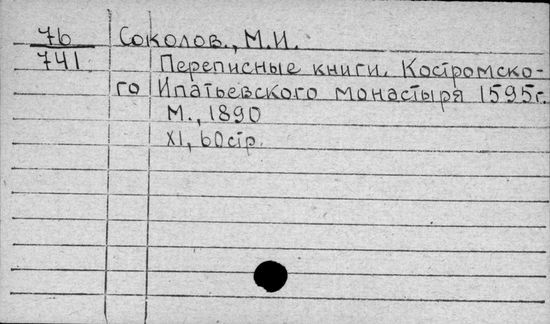 76 Соколов., М.И.
741 Переписные книги. Костромско-
го Ипатьевского монастыря 1595г.
М., 1890
XI, 60стр.